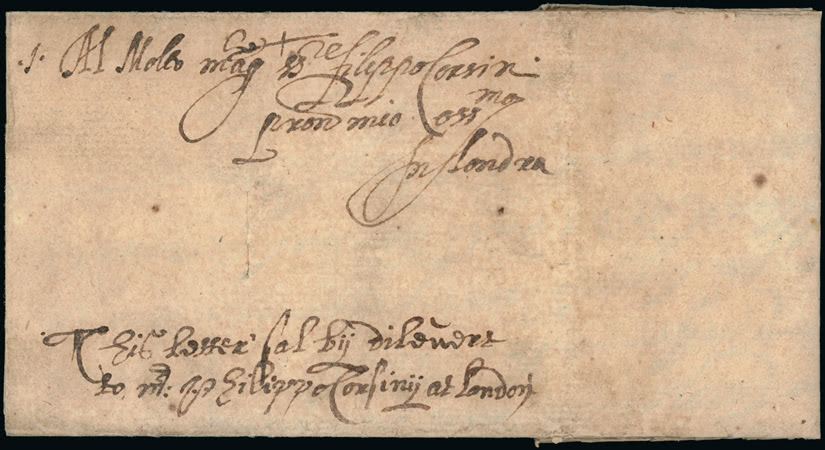 .1. Al Molto mag.co + Sre filippo Corsin.
pron mio Ossmo
In Londra
This letter sal bij dilevert
to mr: Philippo Corsinij at London